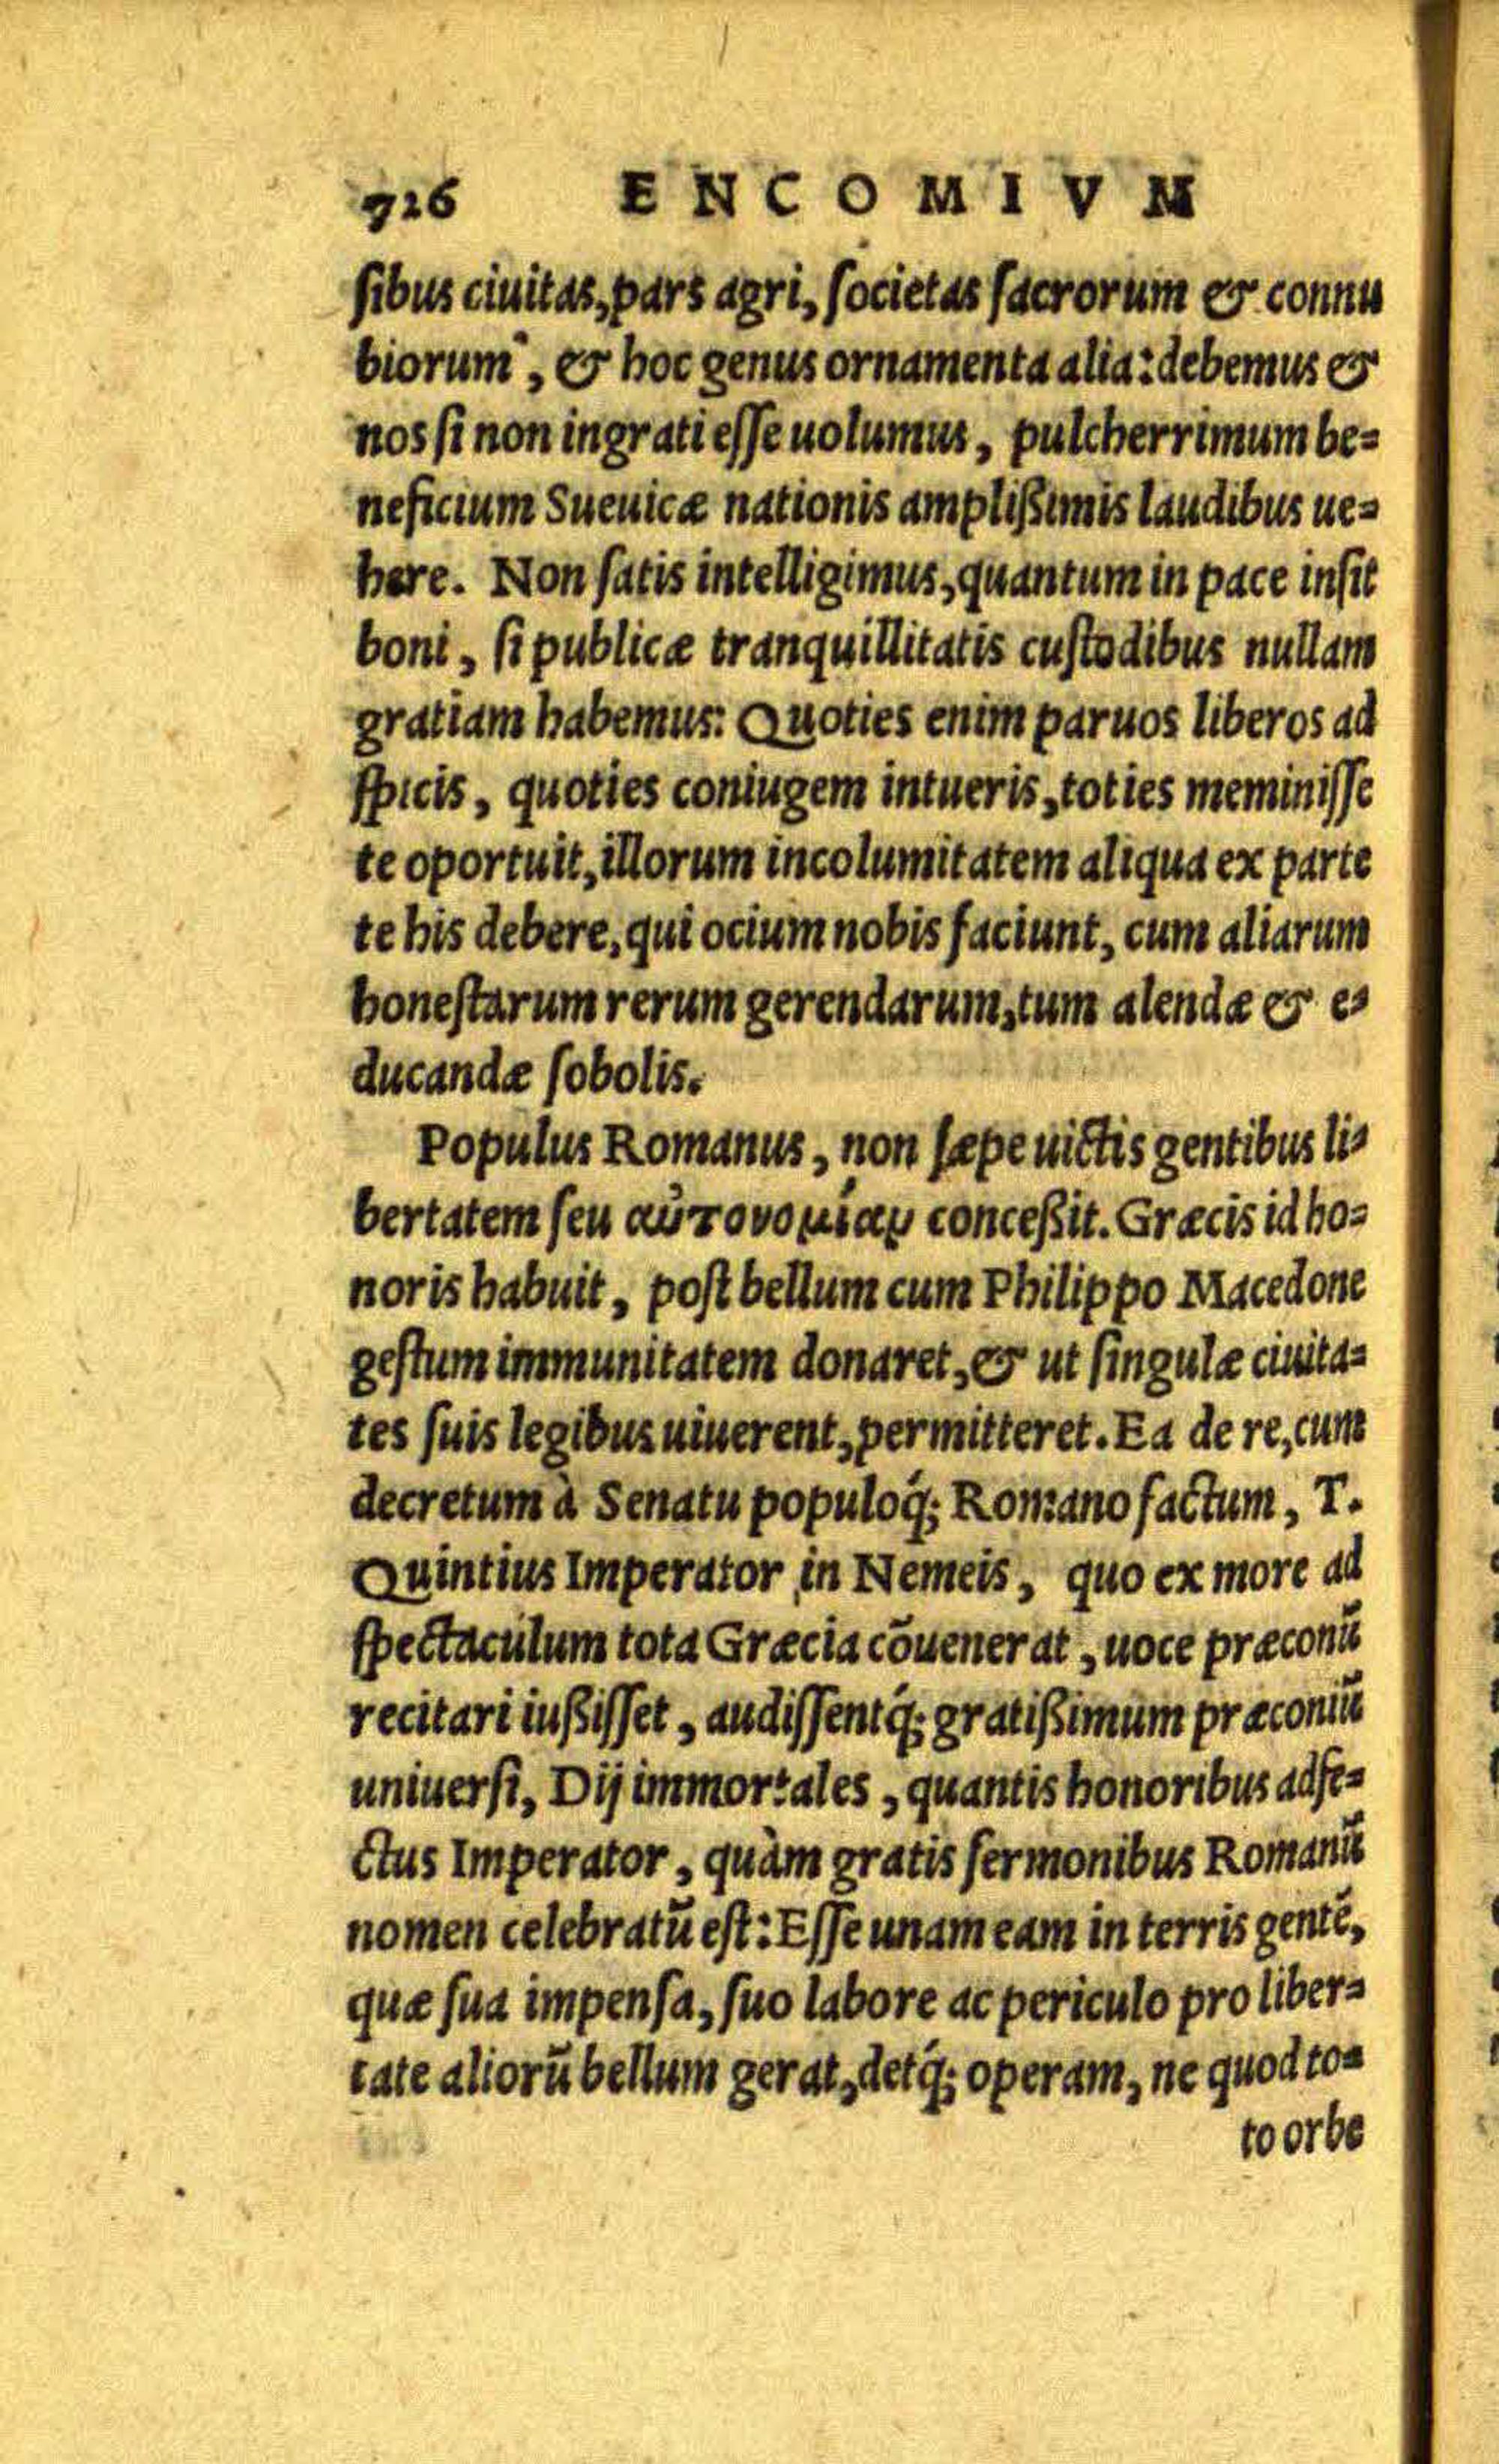 726 ENCOMIVM
ſibus ciuitas, pars agri, ſocietas ſacrorum & connu
biorum, & hoc genus ornamenta alia: debemus &
nos ſi non ingrati eſſe uolumus, pulcherrimum be=
neficium Sueuicæ nationis ampliſsimis laudibus ue=
here. Non ſatis intelligimus, quantum in pace inſit
boni, ſi publicæ tranquillitatis cuſtodibus nullam
gratiam habemus: Quoties enim paruos liberos ad
ſpicis, quoties coniugem intueris, toties meminiſſe
te oportuit, illorum incolumitatem aliqua ex parte
te his debere, qui ocium nobis faciunt, cum aliarum
honeſtarum rerum gerendarum, tum alendæ & e=
ducandæ ſobolis.
Populus Romanus, non ſæpe uictis gentibus li=
bertatem ſeu αὐτονομίαν conceſsit. Græcis id ho=
noris habuit, poſt bellum cum Philippo Macedone
geſtum immunitatem donaret, & ut ſingulæ ciuita=
tes ſuis legibus uiuerent, permitteret. Ea de re, cum
decretum à Senatu populoq́; Romano factum, T.
Quintius Imperator in Nemeis, quo ex more ad
ſpectaculum tota Græcia cõuenerat, uoce præconũ
recitari iuſsiſſet, audiſſentq́; gratiſsimum præconiũ
uniuerſi, Dij immortales, quantis honoribus adfe=
ctus Imperator, quàm gratis ſermonibus Romanũ
nomen celebratũ eſt: Eſſe unam eam in terris gentẽ,
quæ ſua impenſa, ſuo labore ac periculo pro liber=
tate aliorũ bellum gerat, detq́; operam, ne quod to=
to orbe